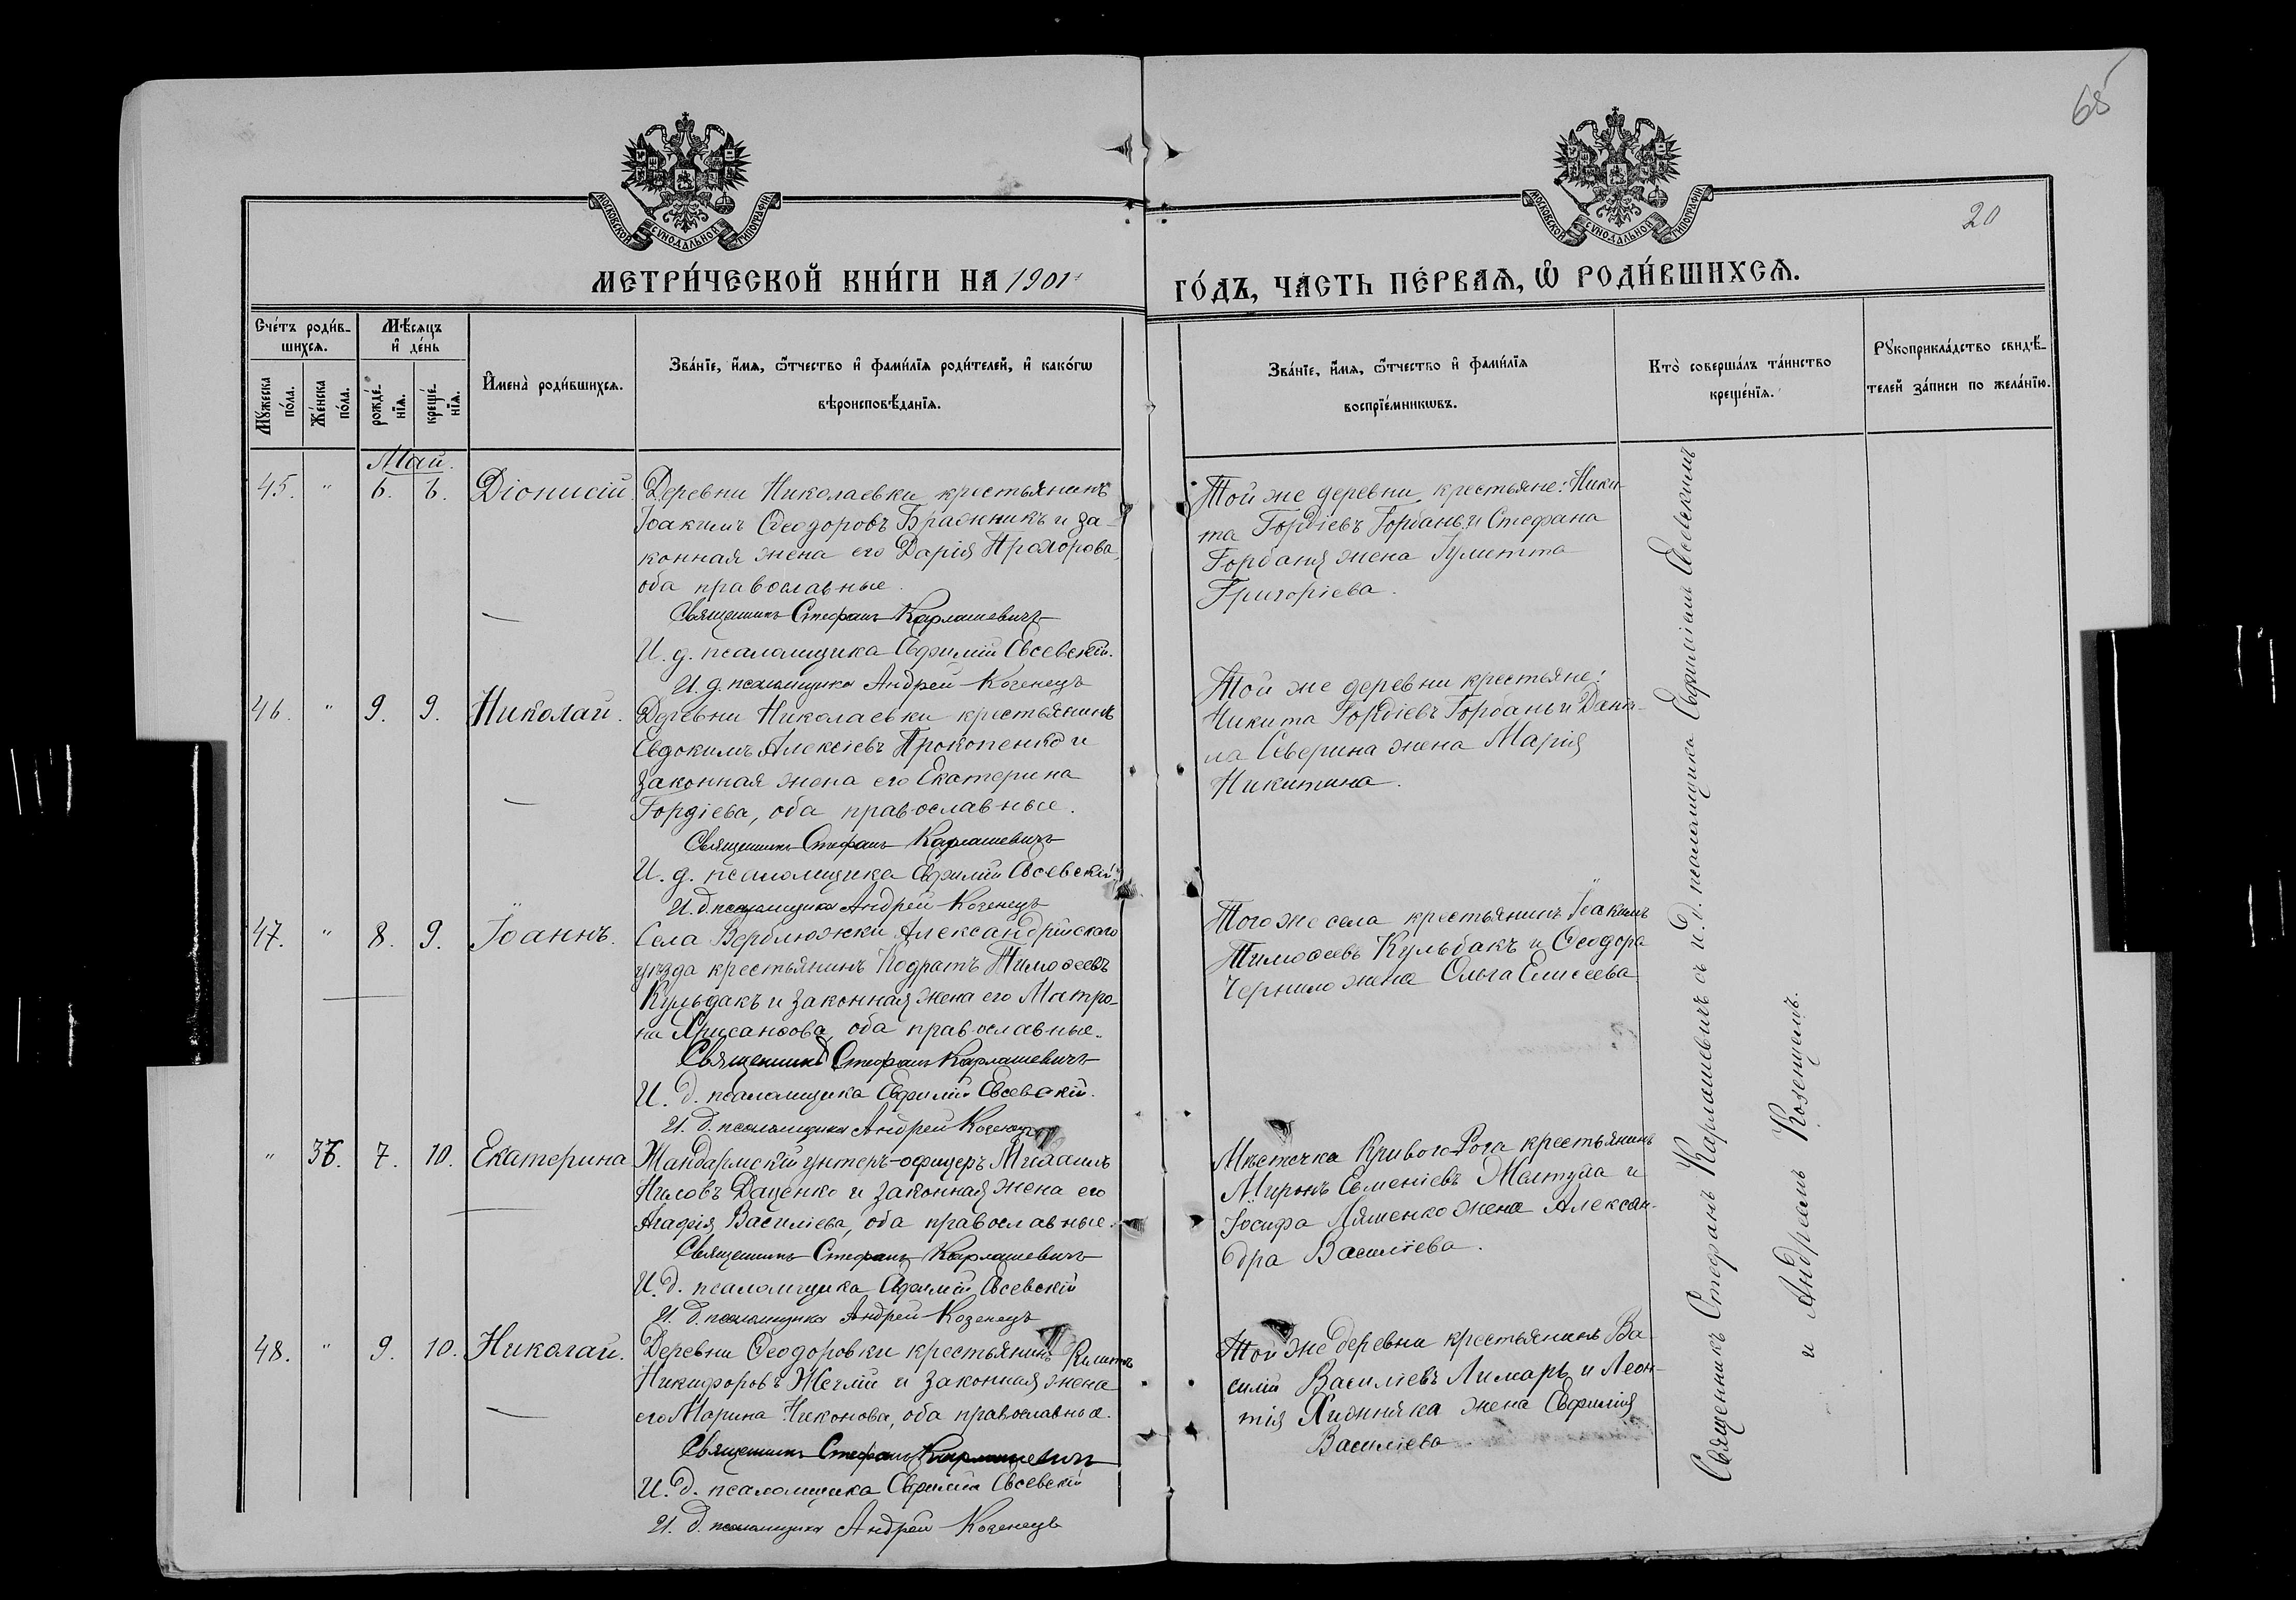 65
20
МОСКОВСКОЙ СѴНОДАЛЬНОЙ ТИПОГРАФІИ
МОСКОВСКОЙ СѴНОДАЛЬНОЙ ТИПОГРАФІИ
МЕТРИ́ЧЕСКОЙ КНИ́ГИ НА 1901
ГО́ДЪ, ЧА́СТЬ ПЕ́РВАѦ, Ѡ РОДИ́ВШИХСѦ.
Сче́тъ роди́в-
шихсѧ.
Мꙋ́жеска по́ла.
Же́нска по́ла.
Мѣ́сѧцъ
и҆ де́нь
рожде́-
нїѧ.
креще́-
нїѧ.
И҆мена̀ роди́вшихсѧ.
Зва́нїе, и҆́мѧ, ѻ҆́тчество и҆ фами́лїѧ роди́телей, и҆ како́гѡ
вѣроисповѣ́данїѧ.
Зва́нїе, и҆́мѧ, ѻ҆́тчество и҆ фами́лїѧ
воспрїе́мникѡвъ.
Кто̀ соверша́лъ та́инство
креще́нїѧ.
Рꙋкоприкла́дство свидѣ́-
телей за́писи по жела́нїю.
Май.
45. " 6. 6. Діонисій.
Деревни Николаевки крестьянинъ
Іоакимъ Ѳеодоровъ Бражникъ и за-
конная жена его Дарія Прохорова,
оба православные.
Священникъ Стефанъ Карлашевичъ
И. д. псаломщика Евфимій Евсевскій.
И. д. псаломщика Андрей Козенецъ
Той же деревни, крестьяне: Ники-
та Гордіевъ Горбань и Стефана
Горбаня жена Іулитта
Григоріева.
46. " 9. 9. Николай.
Деревни Николаевки крестьянинъ
Евдокимъ Алексіевъ Прокопенко и
законная жена его Екатерина
Гордіева, оба православные.
Священникъ Стефанъ Карлашевичъ
И. д. псаломщика Евфимій Евсевскій
И. д. псаломщика Андрей Козенецъ
Той же деревни крестьяне:
Никита Гордіевъ Горбань и Дани-
ла Северина жена Марія
Никитина.
47. " 8. 9. Іоаннъ.
Села Верблюжки Александрійскаго
уѣзда крестьянинъ Кодратъ Тимоѳеевъ
Кульбакъ и законная жена его Матро-
на Хрисанѳова, оба православные.
Священникъ Стефанъ Карлашевичъ
И. д. псаломщика Евфимій Евсевскій.
И. д. псаломщика Андрей Козенецъ
Того же села крестьянинъ Іоакимъ
Тимоѳеевъ Кульбакъ и Ѳеодора
Чернило жена Ольга Елисеева
" 36. 7. 10. Екатерина
Жандармскій унтеръ-офицеръ Михаилъ
Ниловъ Даценко и законная жена его
Агафія Василіева, оба православные.
Священникъ Стефанъ Карлашевичъ
И. д. псаломщика Евфимій Евсевскій
И. д. псаломщика Андрей Козенецъ
Мѣстечка Кривого Рога крестьянинъ
Миронъ Семеніевъ и
Іосифа Ляшенко жена Алексан-
дра Василіева.
48. " 9. 10. Николай.
Деревни Ѳеодоровки крестьянинъ
Никифоровъ и законная жена
его Марина Никонова, оба православные.
Священникъ Стефанъ Карлашевичъ
И. д. псаломщика Евфимій Евсевскій
И. д. псаломщика Андрей Козенецъ
Той же деревни крестьянинъ Ва-
силій Василіевъ Лимарь и Леон-
тія Хижняка жена Евфимія
Василіева.
Священникъ Стефанъ Карлашевичъ съ и. д. псаломщика Евфиміемъ Евсевскимъ
и Андреемъ Козенцемъ.